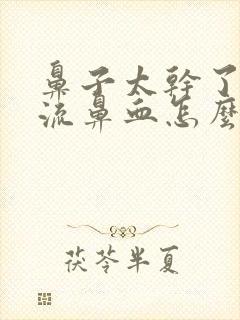 鼻子太幹了
流鼻血怎麼
茯苓半夏